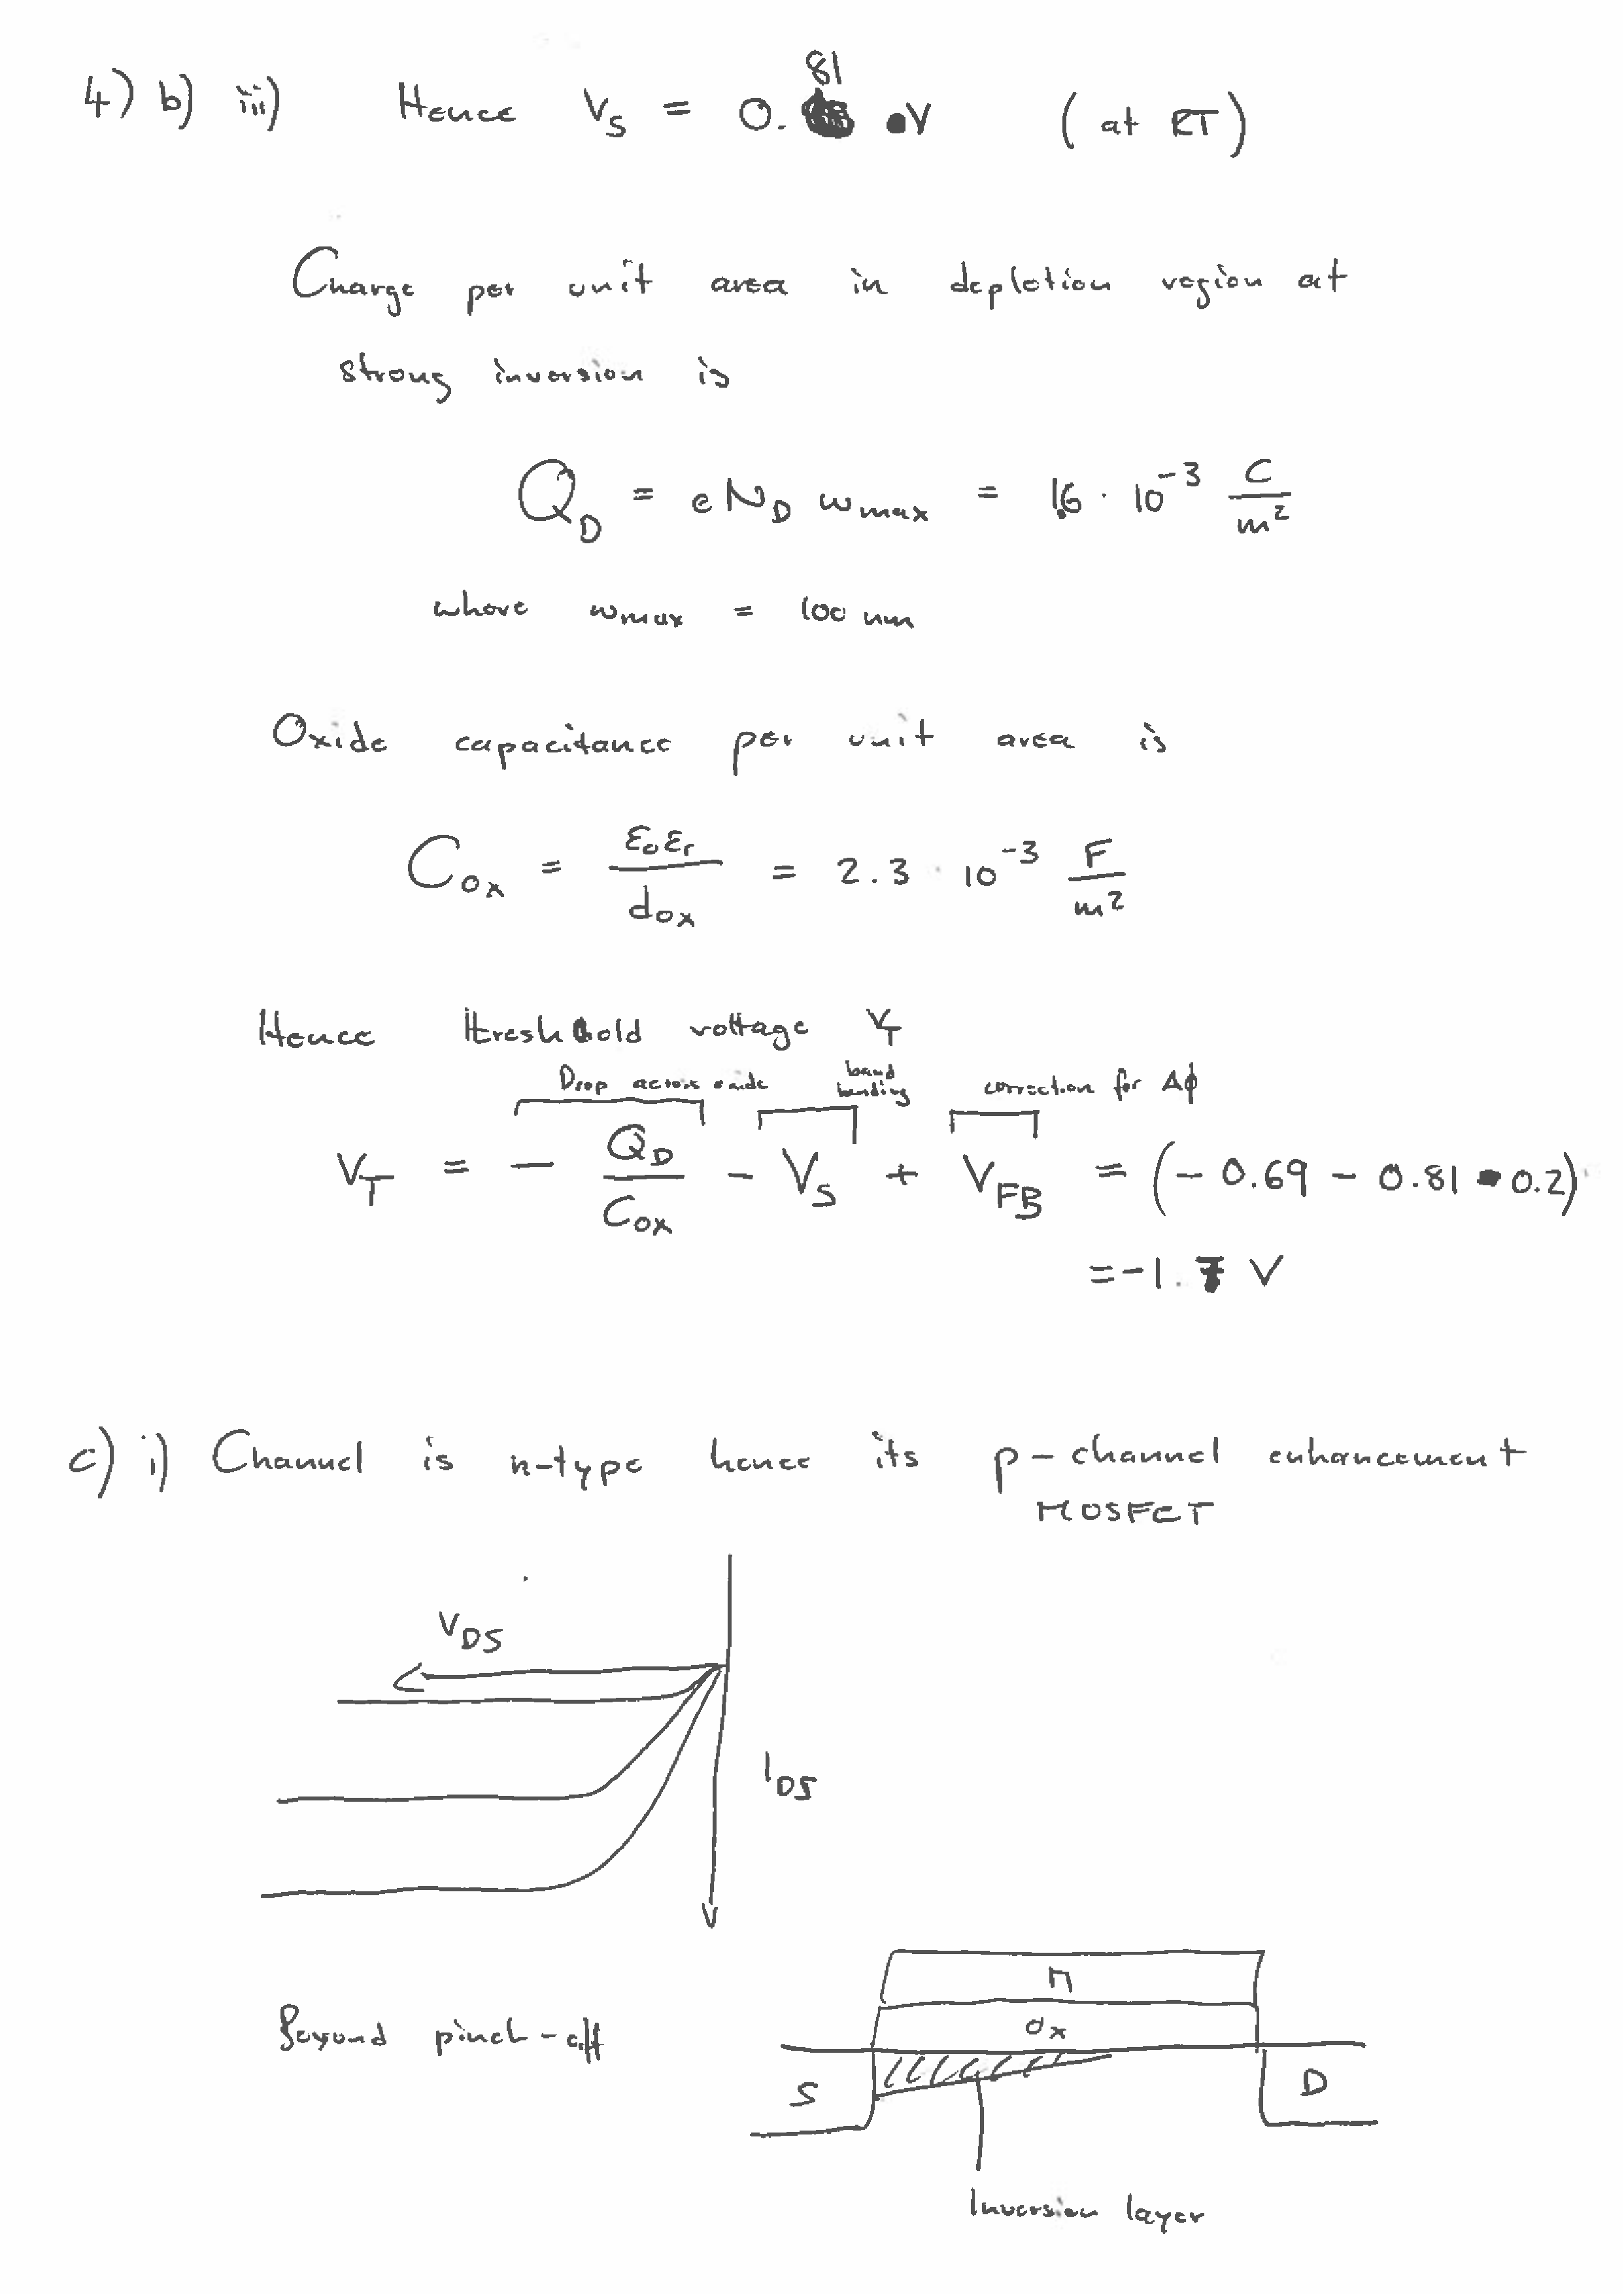 4) b) iii) Hence V_S = 0.81 V (at RT)
Charge per unit area in depletion region at
strong inversion is
Q_D = e N_D w_max = 1.6 · 10^-3 C/m^2
where w_max = 100 nm
Oxide capacitance per unit area is
C_ox = ε_0 ε_r / d_ox = 2.3 · 10^-3 F/m^2
Hence threshold voltage V_T
Drop across oxide band bending correction for Δϕ
V_T = - Q_D / C_ox - V_S + V_FB = (- 0.69 - 0.81 - 0.2)
= -1.7 V
c) i) Channel is n-type hence its p-channel enhancement
MOSFET
V_DS
I_DS
M
ox
Beyond pinch-off
S D
Inversion layer